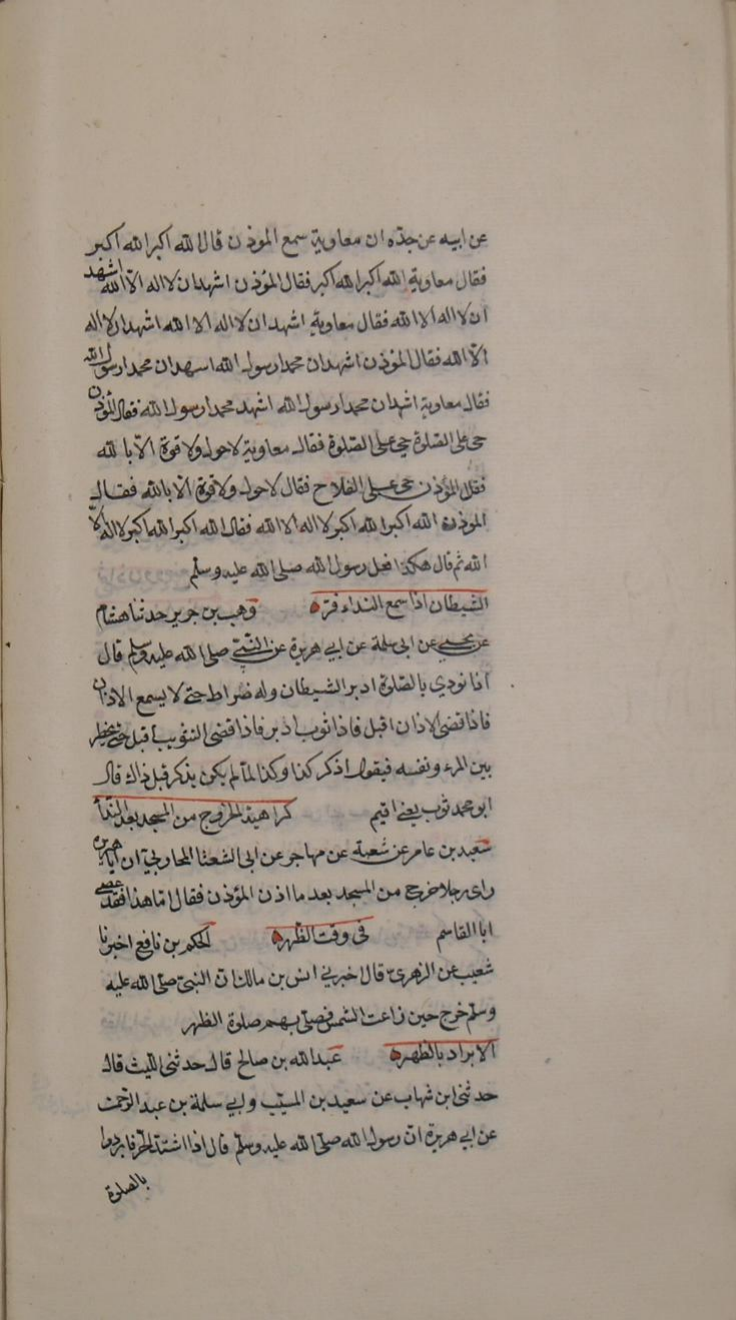 عن ابيه عن جده ان معاوية سمع المؤذن قال الله اكبر الله اكبر
فقال معاوية الله اكبر الله اكبر فقال المؤذن اشهد ان لا اله الا الله اشهد
ان لا اله الا الله فقال معاوية اشهد ان لا اله الا الله اشهد ان لا اله
الا الله فقال المؤذن اشهد ان محمدا رسول الله اشهد ان محمدا رسول الله
فقال معاوية اشهد ان محمدا رسول الله اشهد محمدا رسول الله فقال المؤذن
حي على الصلوة حي على الصلوة فقال معاوية لا حول ولا قوة الا بالله
فقال المؤذن حي على الفلاح فقال لا حول ولا قوة الا بالله فقال
الموذن الله اكبر الله اكبر لا اله الا الله فقال الله اكبر الله اكبر لا اله الا
الله ثم قال هكذا فعل رسول الله صلى الله عليه وسلم
الشيطان اذا سمع النداء فر ه وهب بن جرير حدثنا هشام
عن يحيى عن ابى سلمة عن ابي هريرة عن النبي صلى الله عليه وسلم قال
اذا نودي بالصلوة ادبر الشيطان وله ضراط حتى لا يسمع الاذان
فاذا قضى الاذان اقبل فاذا ثوب ادبر فاذا قضى التثويب اقبل حتى يخطر
بين المرء ونفسه فيقول اذكر كذا وكذا لما لم يكن يذكر قبل ذلك قال
ابو محمد ثوب يعني اقيم كراهية الخروج من المسجد بعد النداء
سعيد بن عامر عن شعبة عن مهاجر عن ابى الشعثا المحاربي ان ابا هريرة
راى رجلا خرج من المسجد بعد ما اذن المؤذن فقال اما هذا فقد عصى
ابا القاسم فى وقت الظهر ه الحكم بن نافع اخبرنا
شعيب عن الزهرى قال اخبرني انس بن مالك ان النبي صلى الله عليه
وسلم خرج حين زاغت الشمس فصلى بهم صلوة الظهر
الابراد بالظهر ه عبد الله بن صالح قال حدثنى الليث قال
حدثنى ابن شهاب عن سعيد بن المسيب وابي سلمة بن عبد الرحمن
عن ابي هريرة ان رسول الله صلى الله عليه وسلم قال اذا اشتد الحر فابردوا
بالصلوة